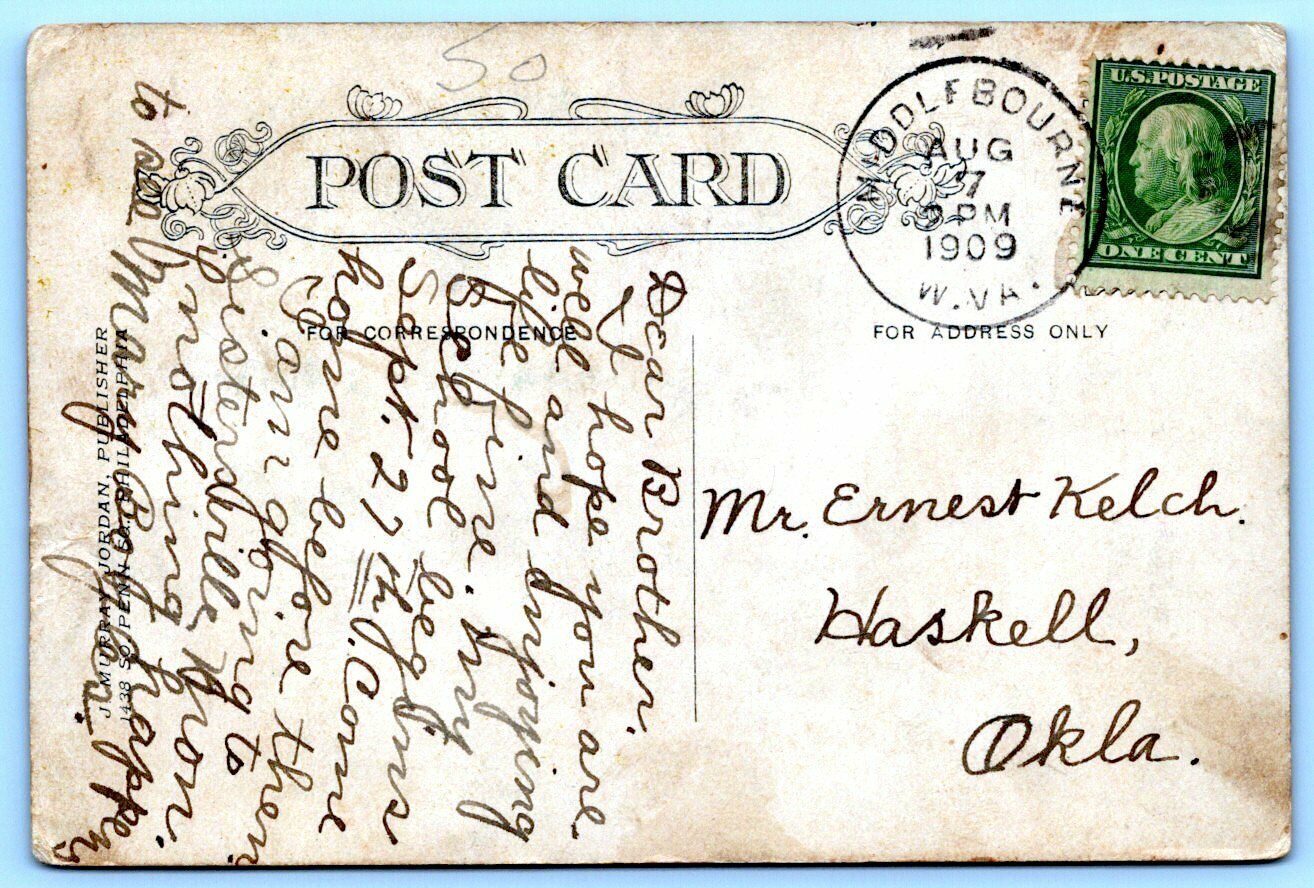 POST CARD
50
MIDDLEBOURNE
AUG
7
3 PM
1909
W.VA.
U.S. POSTAGE
ONE CENT
FOR CORRESPONDENCE
FOR ADDRESS ONLY
Dear Brother.
I hope you are
well and Injoying
life fine. My
School begins
Sept. 27 th. Come
home before then
I am going to
Sistersville Mon.
if nothing happens
to see Mary
Mr. Ernest Kelch.
Haskell,
Okla.
J. MURRAY JORDAN, PUBLISHER
1438 SO. PENN SQ. PHILADELPHIA